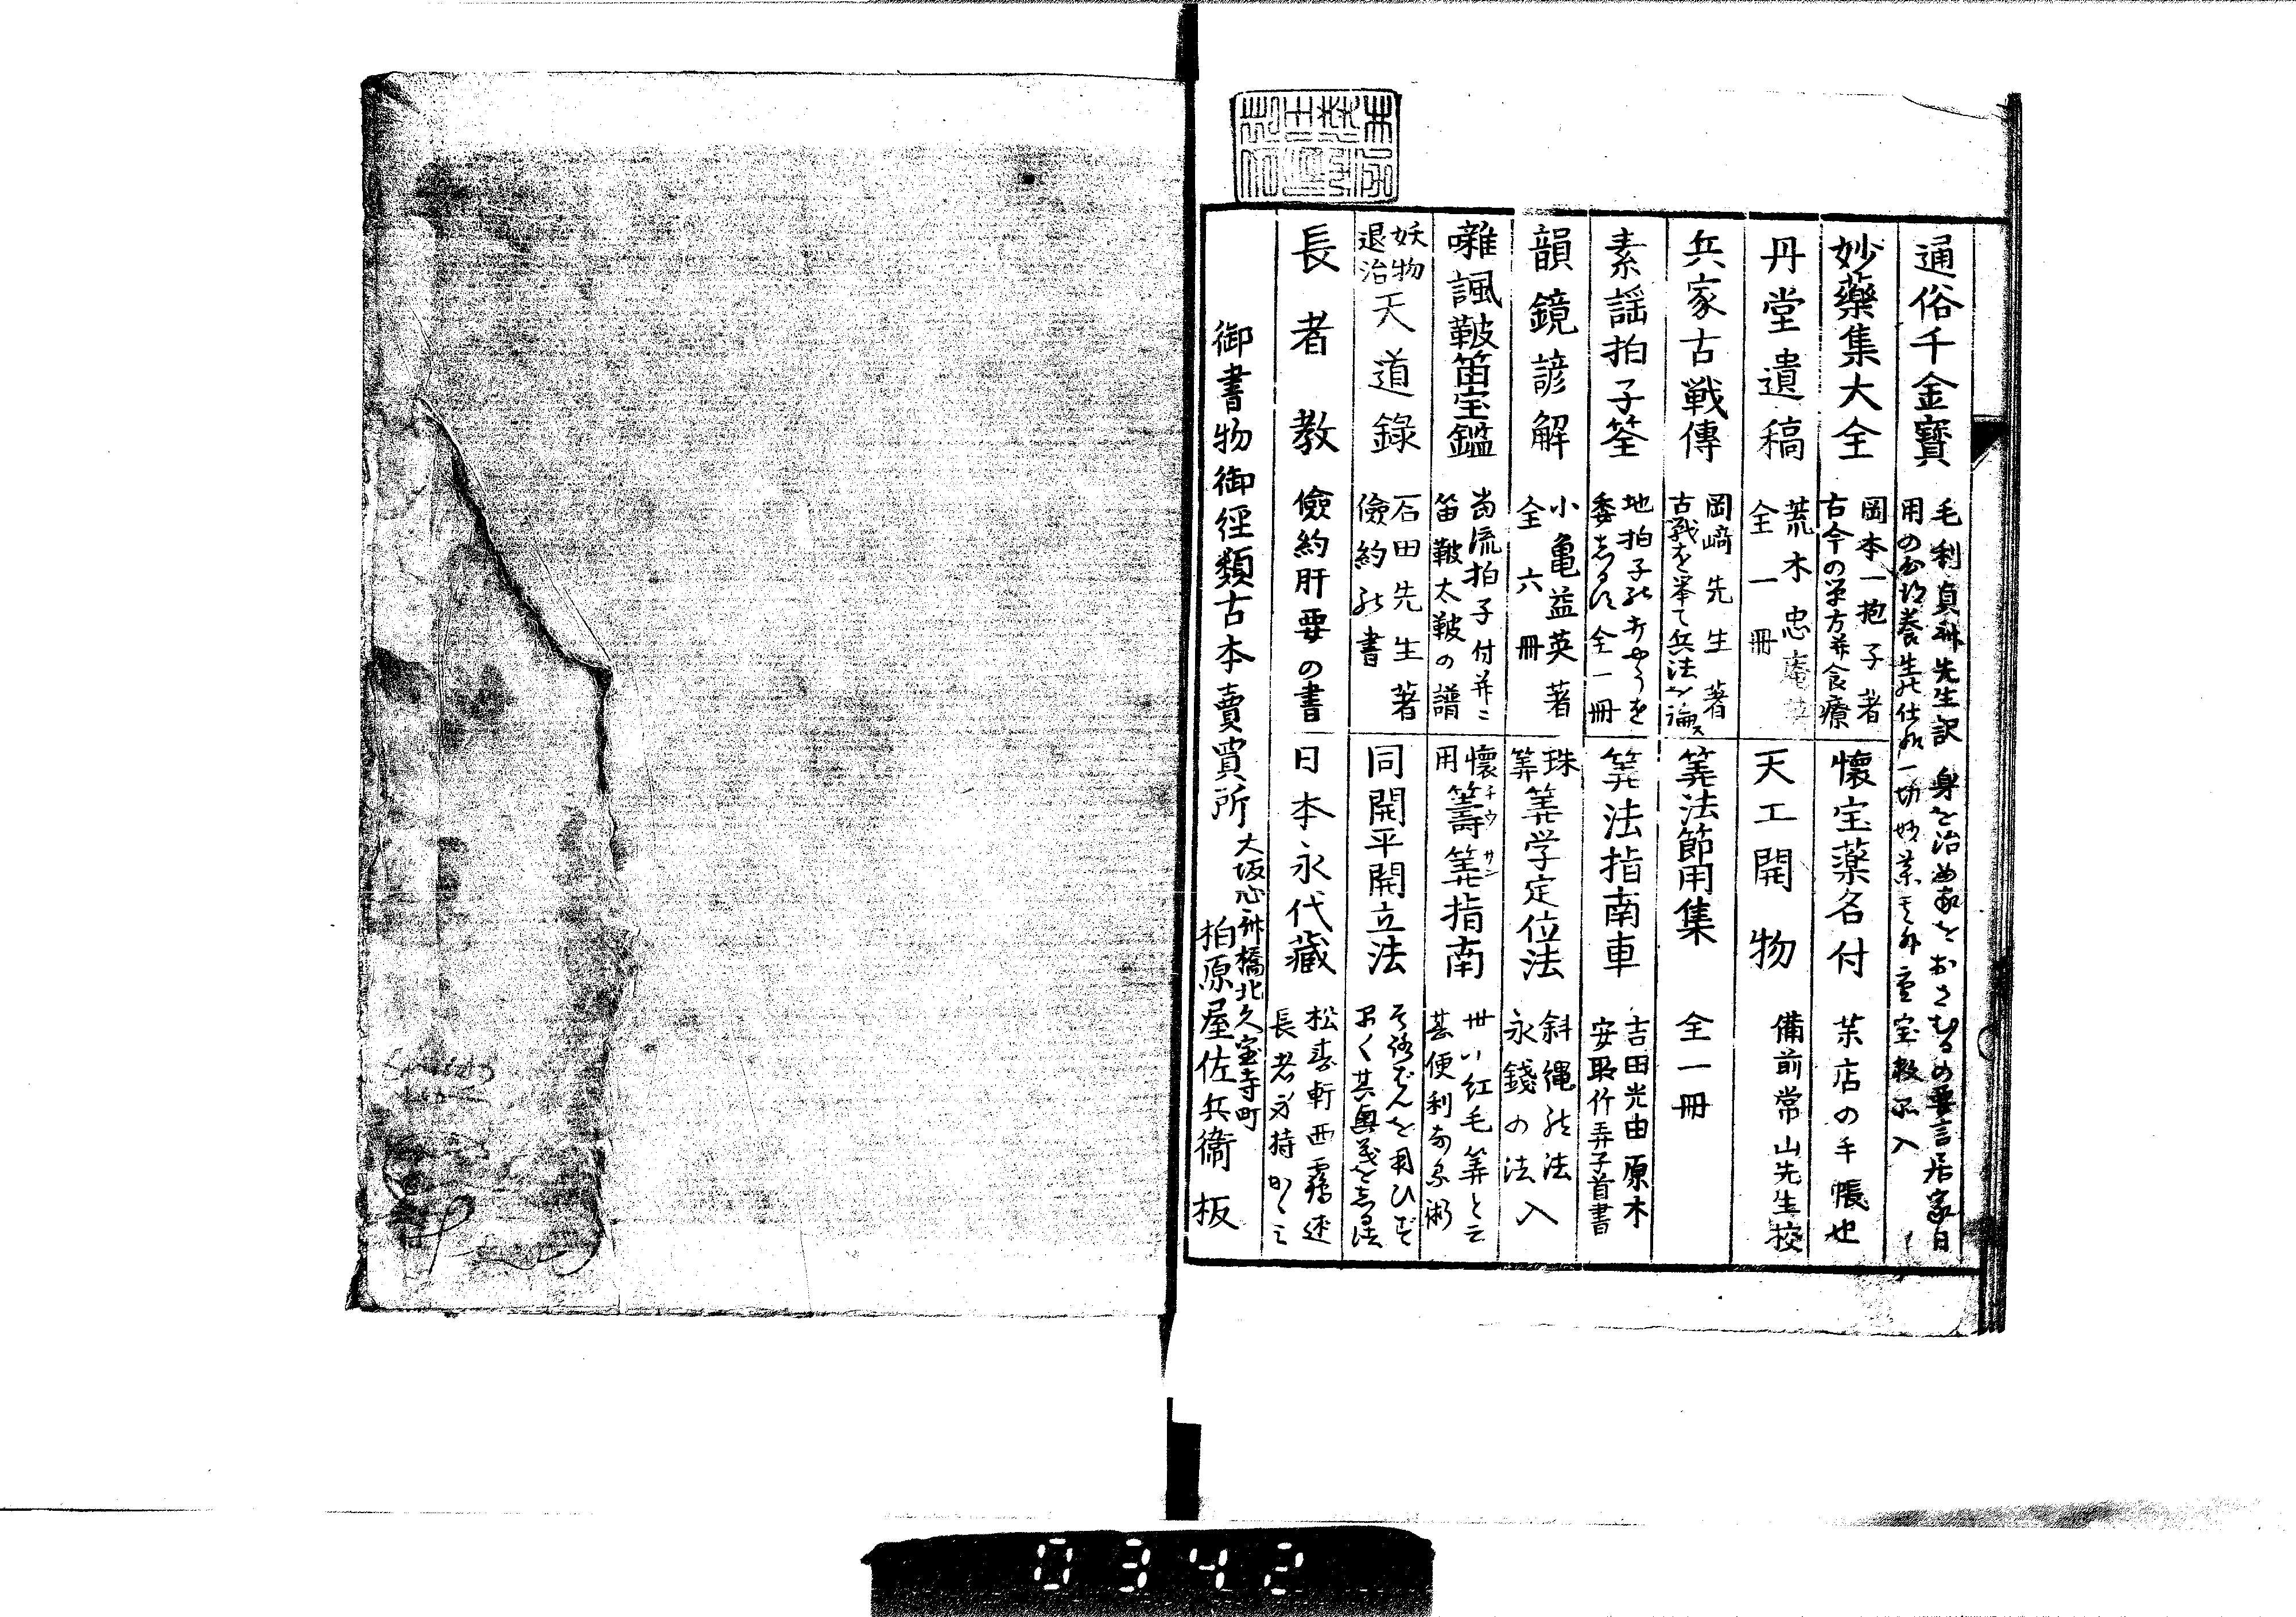 通俗千金寳
毛利貞斎先生訳 身を治め家をおさむるの要言居家日
妙藥集大全
岡本一抱子著
古今の単方并食療
懐宝薬名付
茶店の手帳也
丹堂遺稿
荒木忠庵
全一冊
天工開物
備前常山先生挍
兵家古戦傳
岡﨑先生著
古戦を挙て兵法を論ス
筭法節用集
全一冊
素謡拍子筌
全一冊
筭法指南車
吉田光由原木
安聊竹弄子首書
韻鏡諺解
小亀益英著
全六冊
珠筭
筭学定位法
斜縄の法
永錢の法入
囃諷鞁笛宝鑑
当流拍子付并ニ
笛鞁太鞁の譜
懐用
籌筭指南
チウサン
世ニ紅毛筭と云
甚便利なる術
妖物退治
天道錄
石田先生著
儉約の書
同開平開立法
そろばんを用ひず
早く其奥義を
長者教
儉約肝要の書
日本永代藏
松寿軒西鶴述
御書物御經類古本賣買所
大坂心斎橋北久宝寺町
柏原屋佐兵衞板
0342